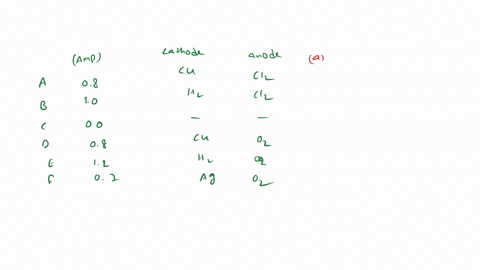 (Amp) cathode anode (a)
A 0.8 Cu Cl2
B 1.0 H2 Cl2
C 0.0 — —
D 0.8 Cu O2
E 1.2 H2 O2
F 0.2 Ag O2